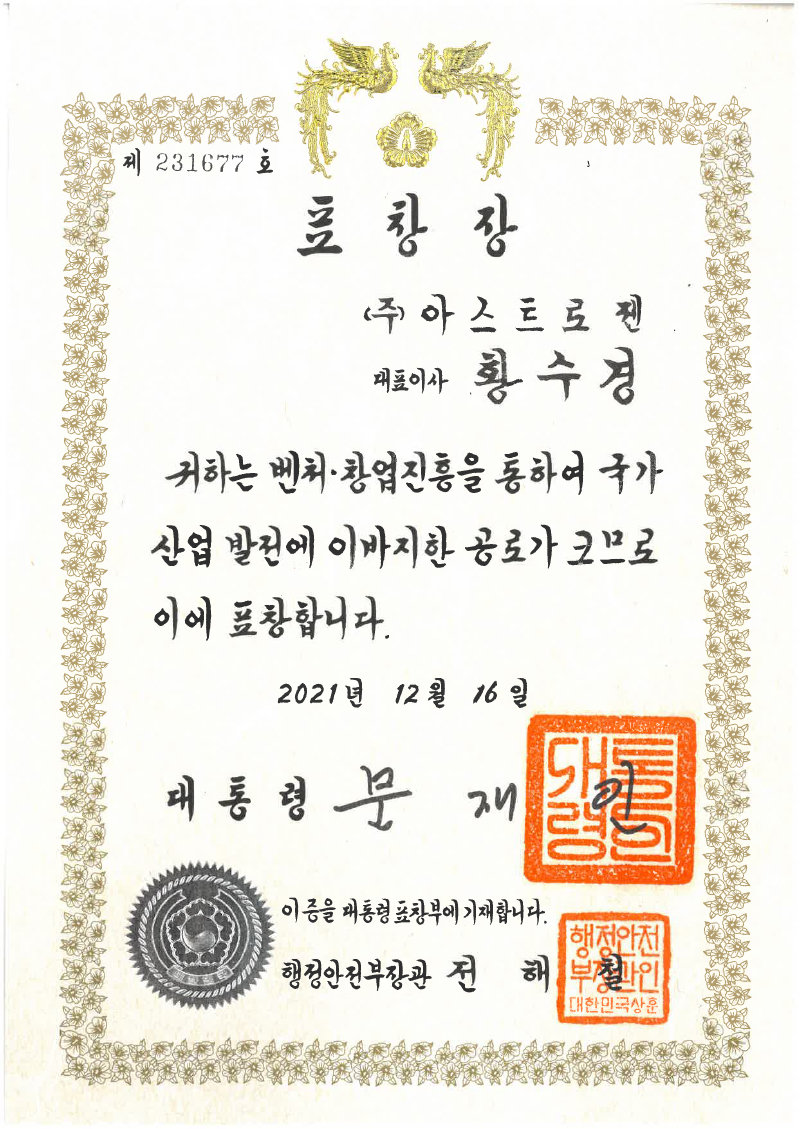 제 231677 호
표 창 장
(주) 아 스 트 로 젠
대표이사 황 수 경
귀하는 벤처·창업진흥을 통하여 국가
산업 발전에 이바지한 공로가 크므로
이에 표창합니다.
2021년 12월 16일
대 통 령 문 재 인
대통령인
이 증을 대통령표창부에 기재합니다.
행정안전부장관 전 해 철
행정안전
부장관인
대한민국상훈